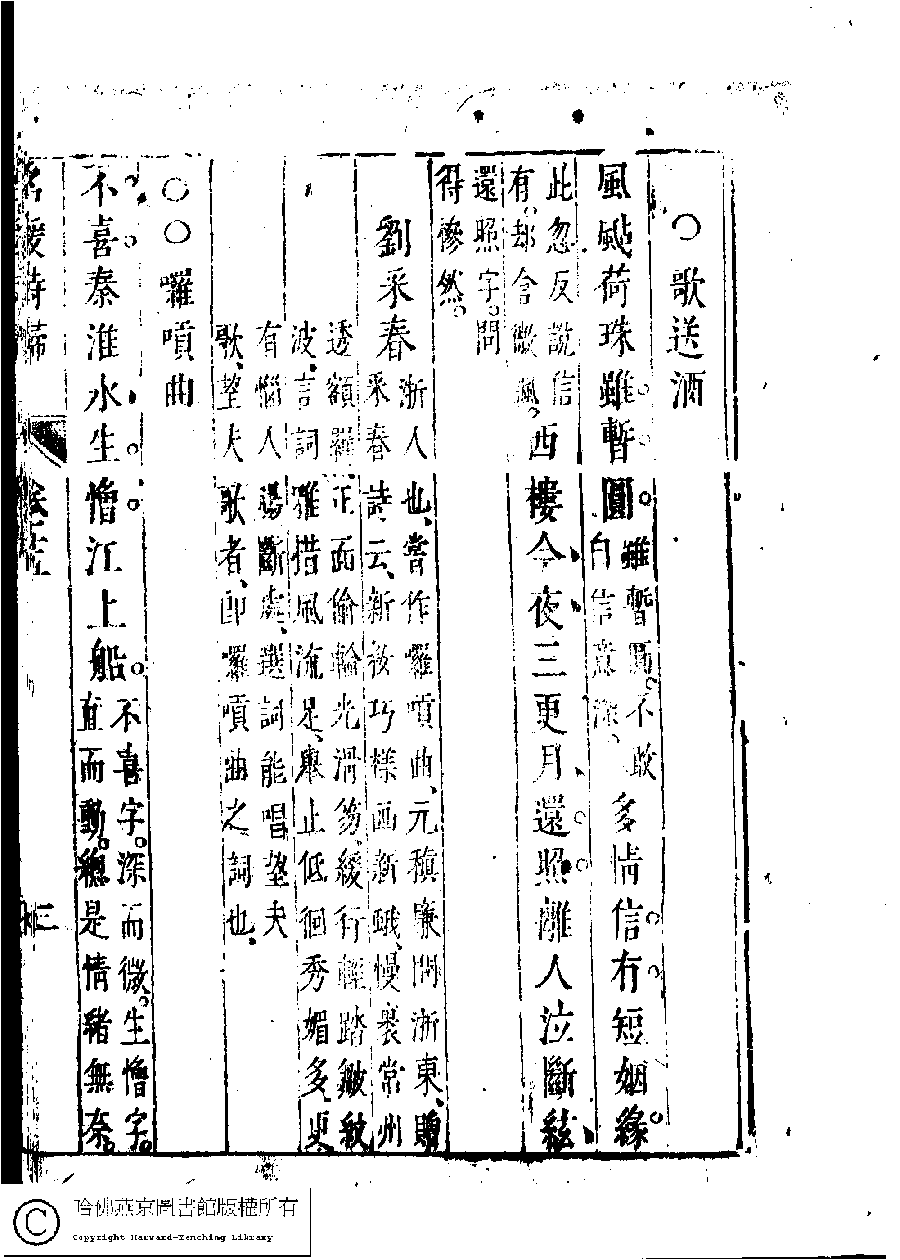 〇歌送酒
風颭荷珠雖暫圓。雖暫圓。不敢自信意深、多情信。有。短姻緣。
此忽反說信有。却含微諷。西樓今夜三更月、還。照。離人泣斷絃、
還照字。問得慘然。
劉采春浙人也、嘗作囉嗊曲、元稹廉問浙東、贈采春詩云、新妝巧樣画新蛾、慢裹常州
透額羅、正面偷輪光滑笏、緩行輕踏皺紋波、言詞雅措風流足、舉止低徊秀媚多、更
有惱人腸斷處、選詞能唱望夫歌、望夫歌者、即囉嗊曲之詞也、
〇〇囉嗊曲
不。喜。秦淮水生。憎。江上船。不喜字。深而微。生憎字。直而動。總是情緒無奈。
名媛詩歸
卷十五
三
哈佛燕京圖書館版權所有
Copyright Harvard-Yenching Library